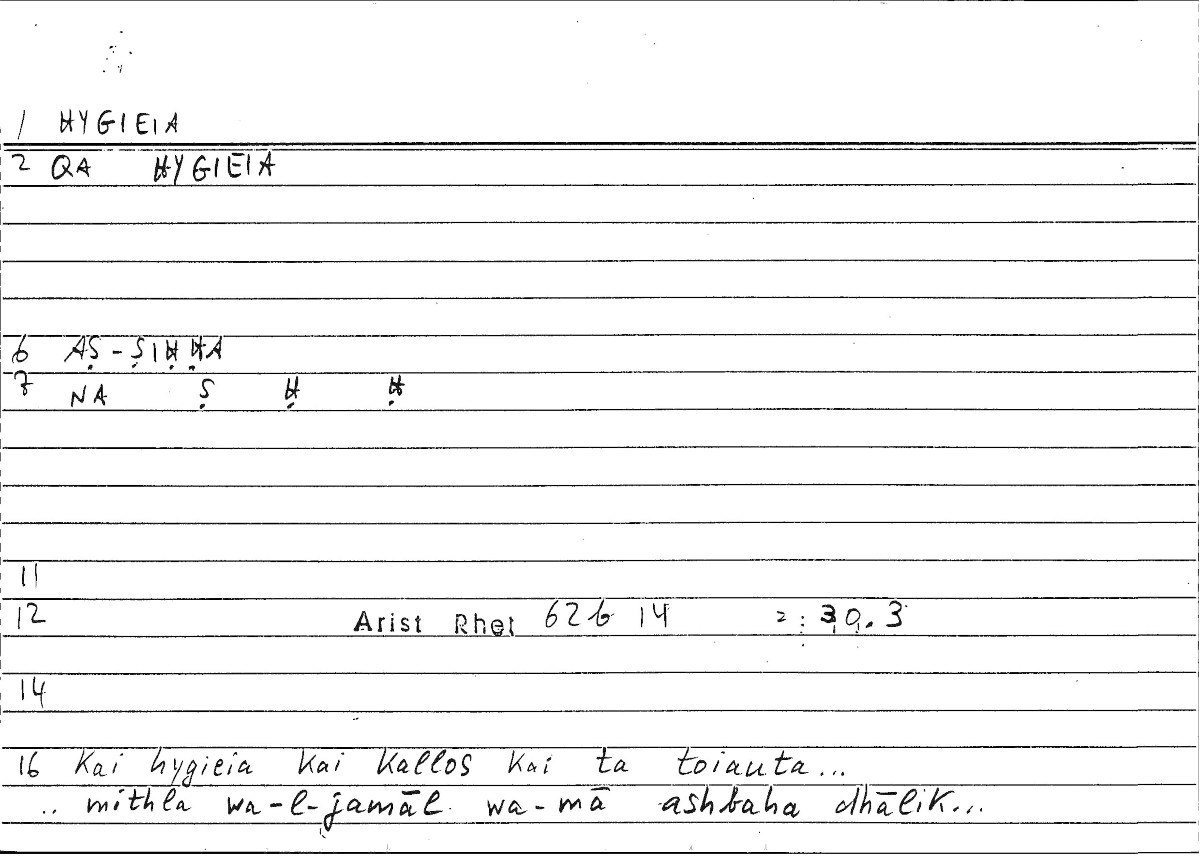 1 HYGIEIA
2 QA HYGIEIA
6 AṢ-ṢIḤḤA
7 NA Ṣ Ḥ Ḥ
11
12 Arist Rhet 62b 14 2: 30.3
14
16 Kai hygieia kai kallos kai ta toiauta...
.. mithla wa-l-jamāl wa-mā ashbaha dhālik...